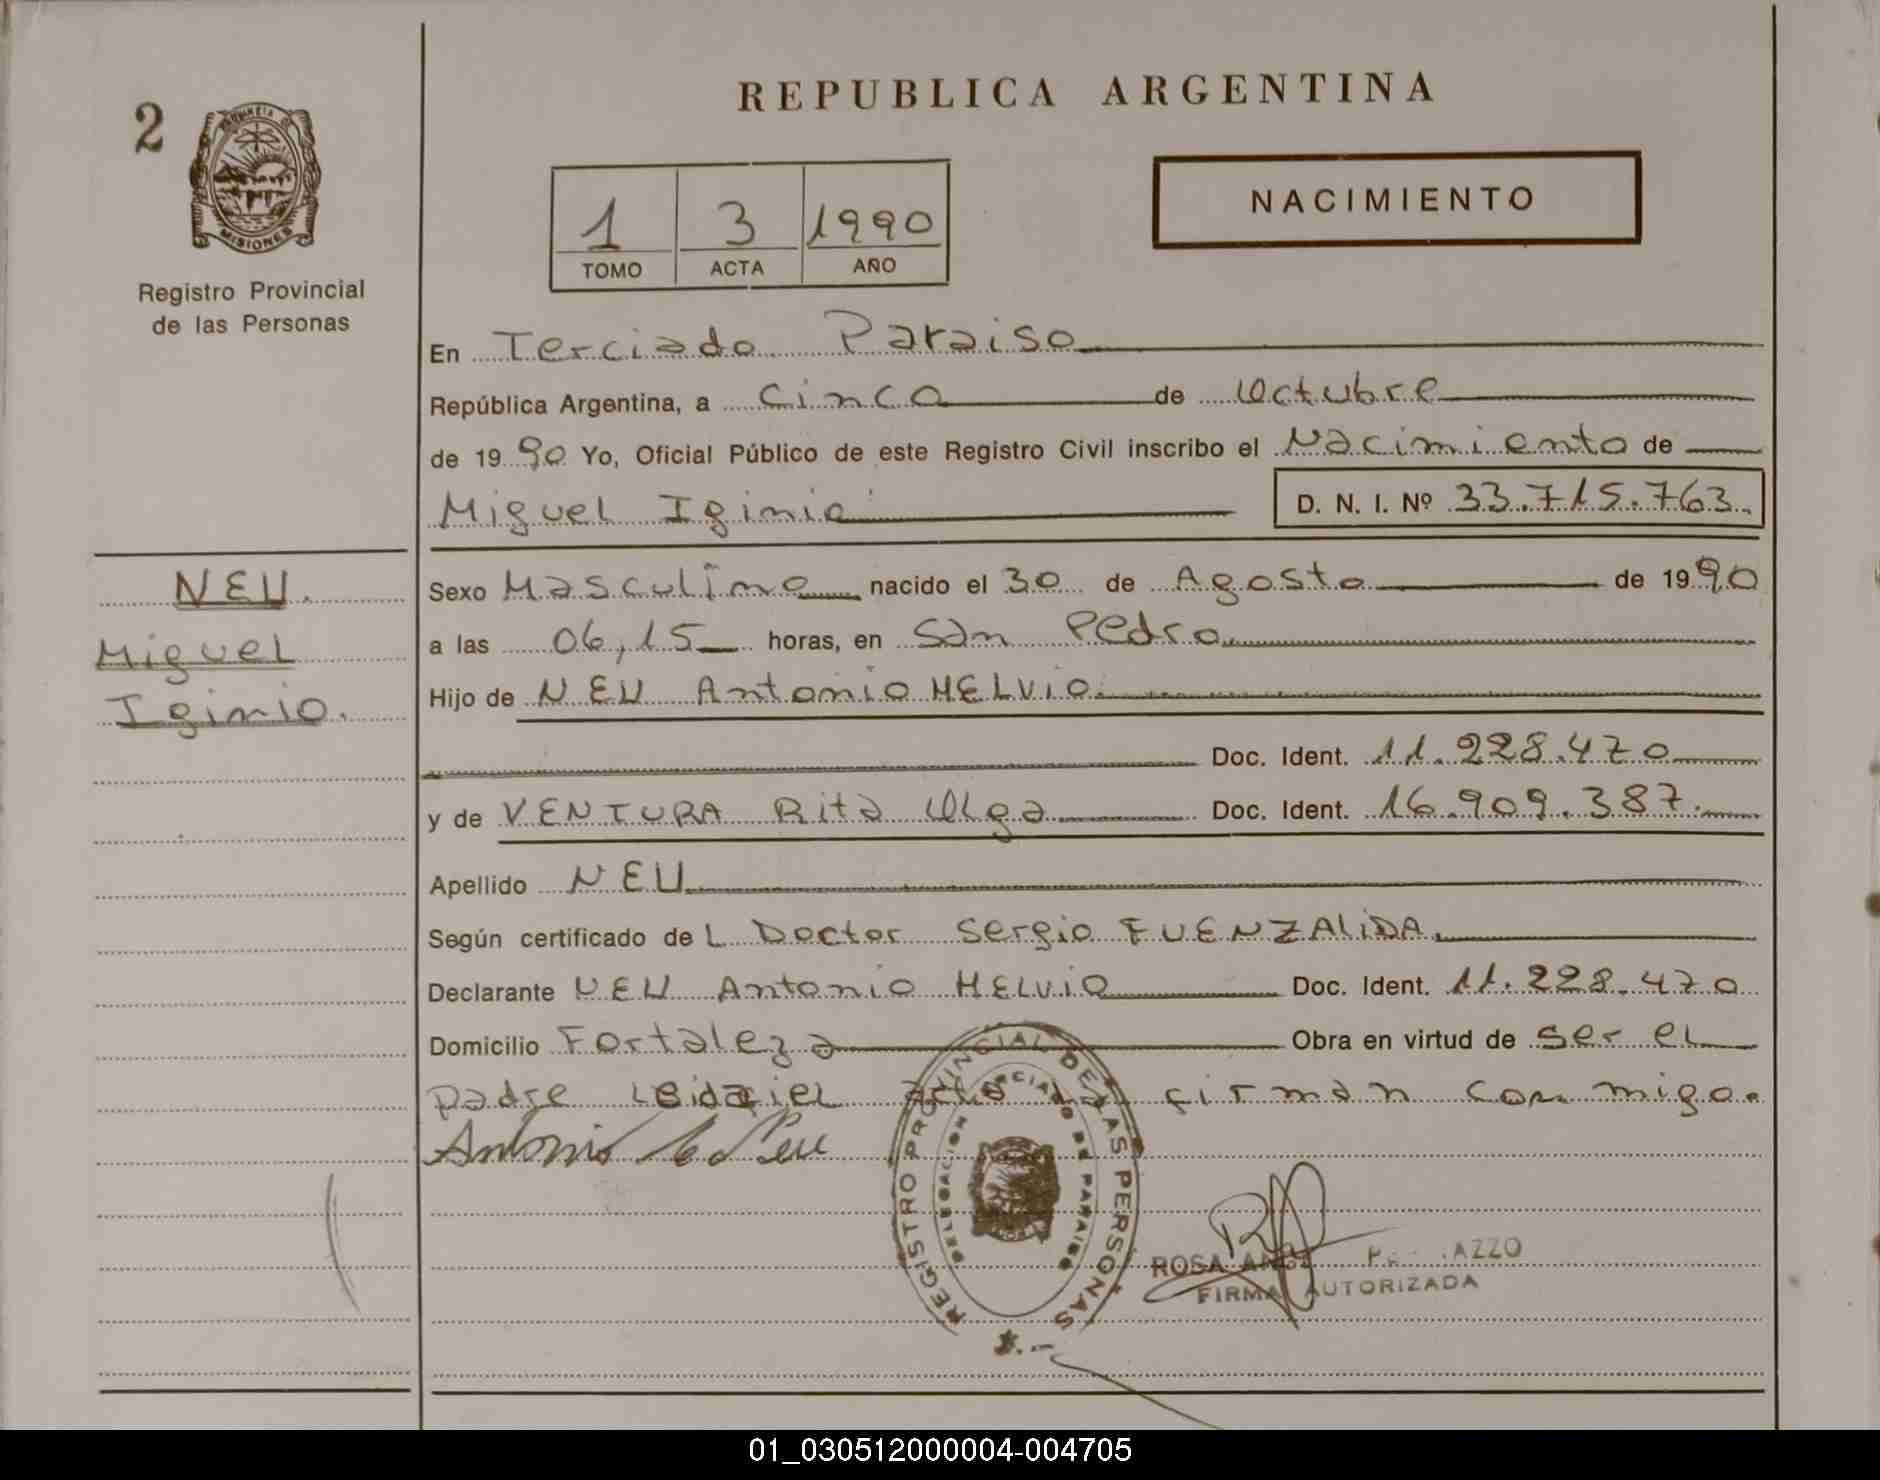 REPUBLICA ARGENTINA
2
PROVINCIA DE
MISIONES
Registro Provincial
de las Personas
1 3 1990
TOMO ACTA AÑO
NACIMIENTO
En Terciado Paraiso
República Argentina, a Cinco de Octubre
de 1990 Yo, Oficial Público de este Registro Civil inscribo el Nacimiento de
Miguel Iginio D. N. I. Nº 33.715.763.
NEU.
Miguel
Iginio.
Sexo Masculino nacido el 30 de Agosto de 1990
a las 06,15 horas, en San Pedro
Hijo de NEU Antonio HELVIO.
Doc. Ident. 11.228.470
y de VENTURA Rita Olga Doc. Ident. 16.909.387.
Apellido NEU
Según certificado de L Doctor Sergio FUENZALIDA.
Declarante NEU Antonio HELVIO Doc. Ident. 11.228.470
Domicilio Fortaleza Obra en virtud de ser el
padre Leida el acta la firman conmigo.
Antonio Neu
REGISTRO PROVINCIAL DE LAS PERSONAS
DELEGACION TERCIADO DE PARAISO
ROSA AZZO
FIRMA AUTORIZADA
01_030512000004-004705